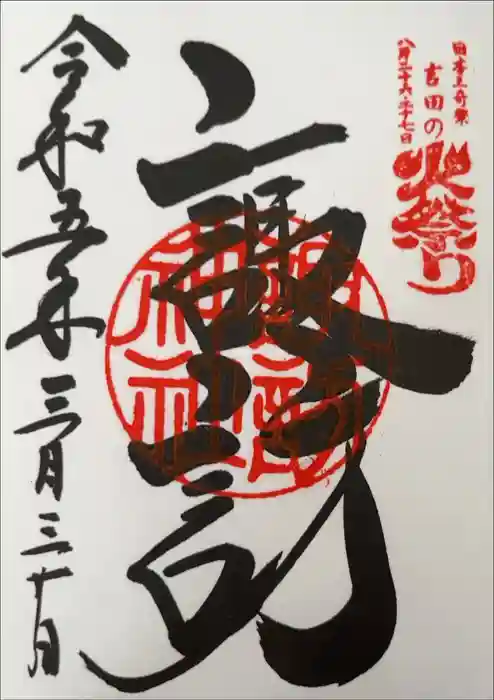 日本三奇祭
吉田の
火祭り
八月二十六・二十七日
諏訪
神社
令和五年三月三十日